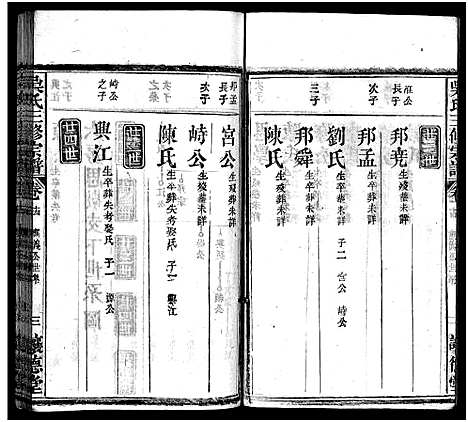 吳氏三修宗譜
廿二世
旺公長子
邦堯 生歿葬未詳
次子
邦孟 生卒葬未詳
劉氏 生卒葬未詳 子二 宮公 峙公
三子
邦舜 生歿葬未詳
陳氏 生歿葬未詳
廿三世
邦孟長子
宮公 生卒葬失考
次子
峙公 生歿葬未詳
陳氏 生卒葬失考娶氏 子一 興江
廿四世
峙公之子
興江 生卒葬失考娶氏 子一
吳氏三修宗譜
三 議德堂